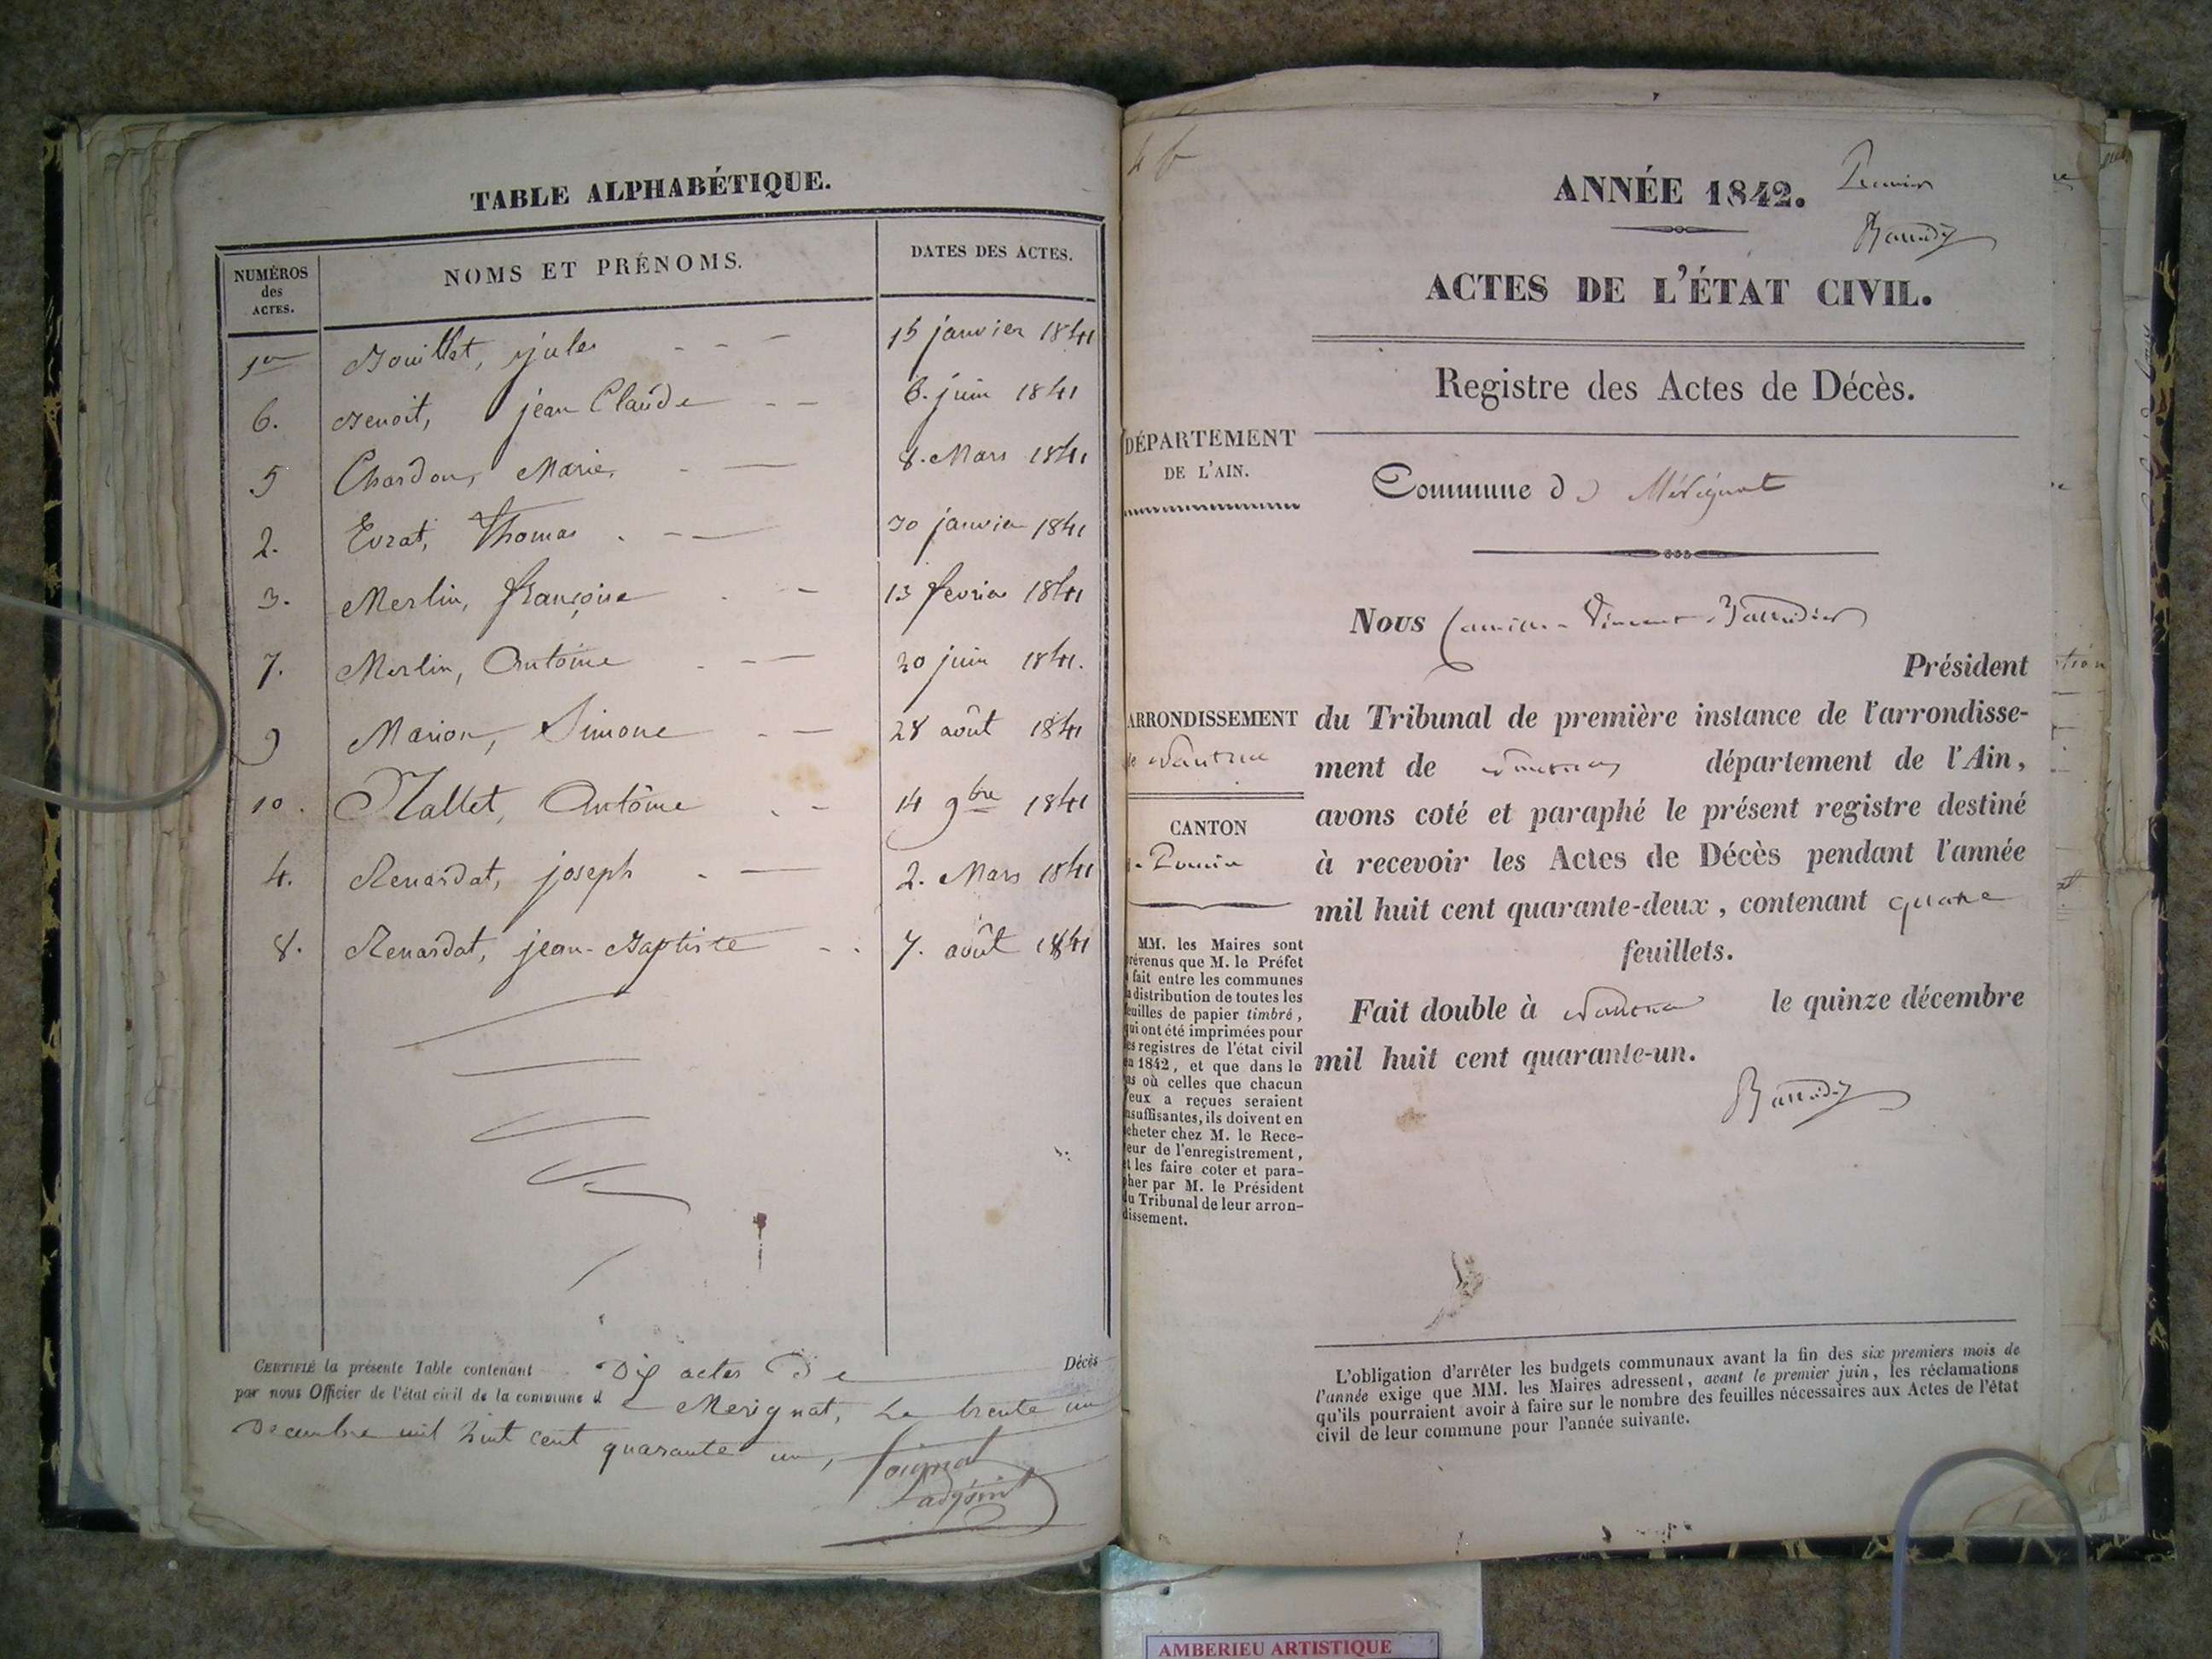 TABLE ALPHABÉTIQUE.
NUMÉROS des ACTES.
NOMS ET PRÉNOMS.
DATES DES ACTES.
1er Bouillet, jules 15 janvier 1841
6. Benoit, jean Claude 6. juin 1841
5 Chardon, Marie, 8. Mars 1841
2. Evrat, Thomas 30 janvier 1841
3. Merlin, françoise 13 fevrier 1841
7. Merlin, Antoine 20 juin 1841.
9 Marion, Simone 28 août 1841
10. Mallet, Antoine 14 9bre 1841
4. Renardat, joseph 2. Mars 1841
8. Renardat, jean-Baptiste 7. août 1841
CERTIFIÉ la présente Table contenant Dix actes De Décès
par nous Officier de l'état civil de la commune de Merignat, Le trente un
Decembre mil huit cent quarante un,
l'adjoint
ANNÉE 1842.
Premier
ACTES DE L'ÉTAT CIVIL.
Registre des Actes de Décès.
DÉPARTEMENT
DE L'AIN.
Commune de Mérignat
ARRONDISSEMENT
de Nantua
CANTON
de Poncin
MM. les Maires sont
prévenus que M. le Préfet
a fait entre les communes
la distribution de toutes les
feuilles de papier timbré,
qui ont été imprimées pour
les registres de l'état civil
en 1842, et que dans le
cas où celles que chacun
d'eux a reçues seraient
insuffisantes, ils doivent en
acheter chez M. le Rece-
veur de l'enregistrement,
et les faire coter et para-
pher par M. le Président
du Tribunal de leur arron-
dissement.
Nous Camille-Vincent
Président
du Tribunal de première instance de l'arrondisse-
ment de Nantua département de l'Ain,
avons coté et paraphé le présent registre destiné
à recevoir les Actes de Décès pendant l'année
mil huit cent quarante-deux, contenant quatre
feuillets.
Fait double à Nantua le quinze décembre
mil huit cent quarante-un.
L'obligation d'arrêter les budgets communaux avant la fin des six premiers mois de
l'année exige que MM. les Maires adressent, avant le premier juin, les réclamations
qu'ils pourraient avoir à faire sur le nombre des feuilles nécessaires aux Actes de l'état
civil de leur commune pour l'année suivante.
AMBERIEU ARTISTIQUE